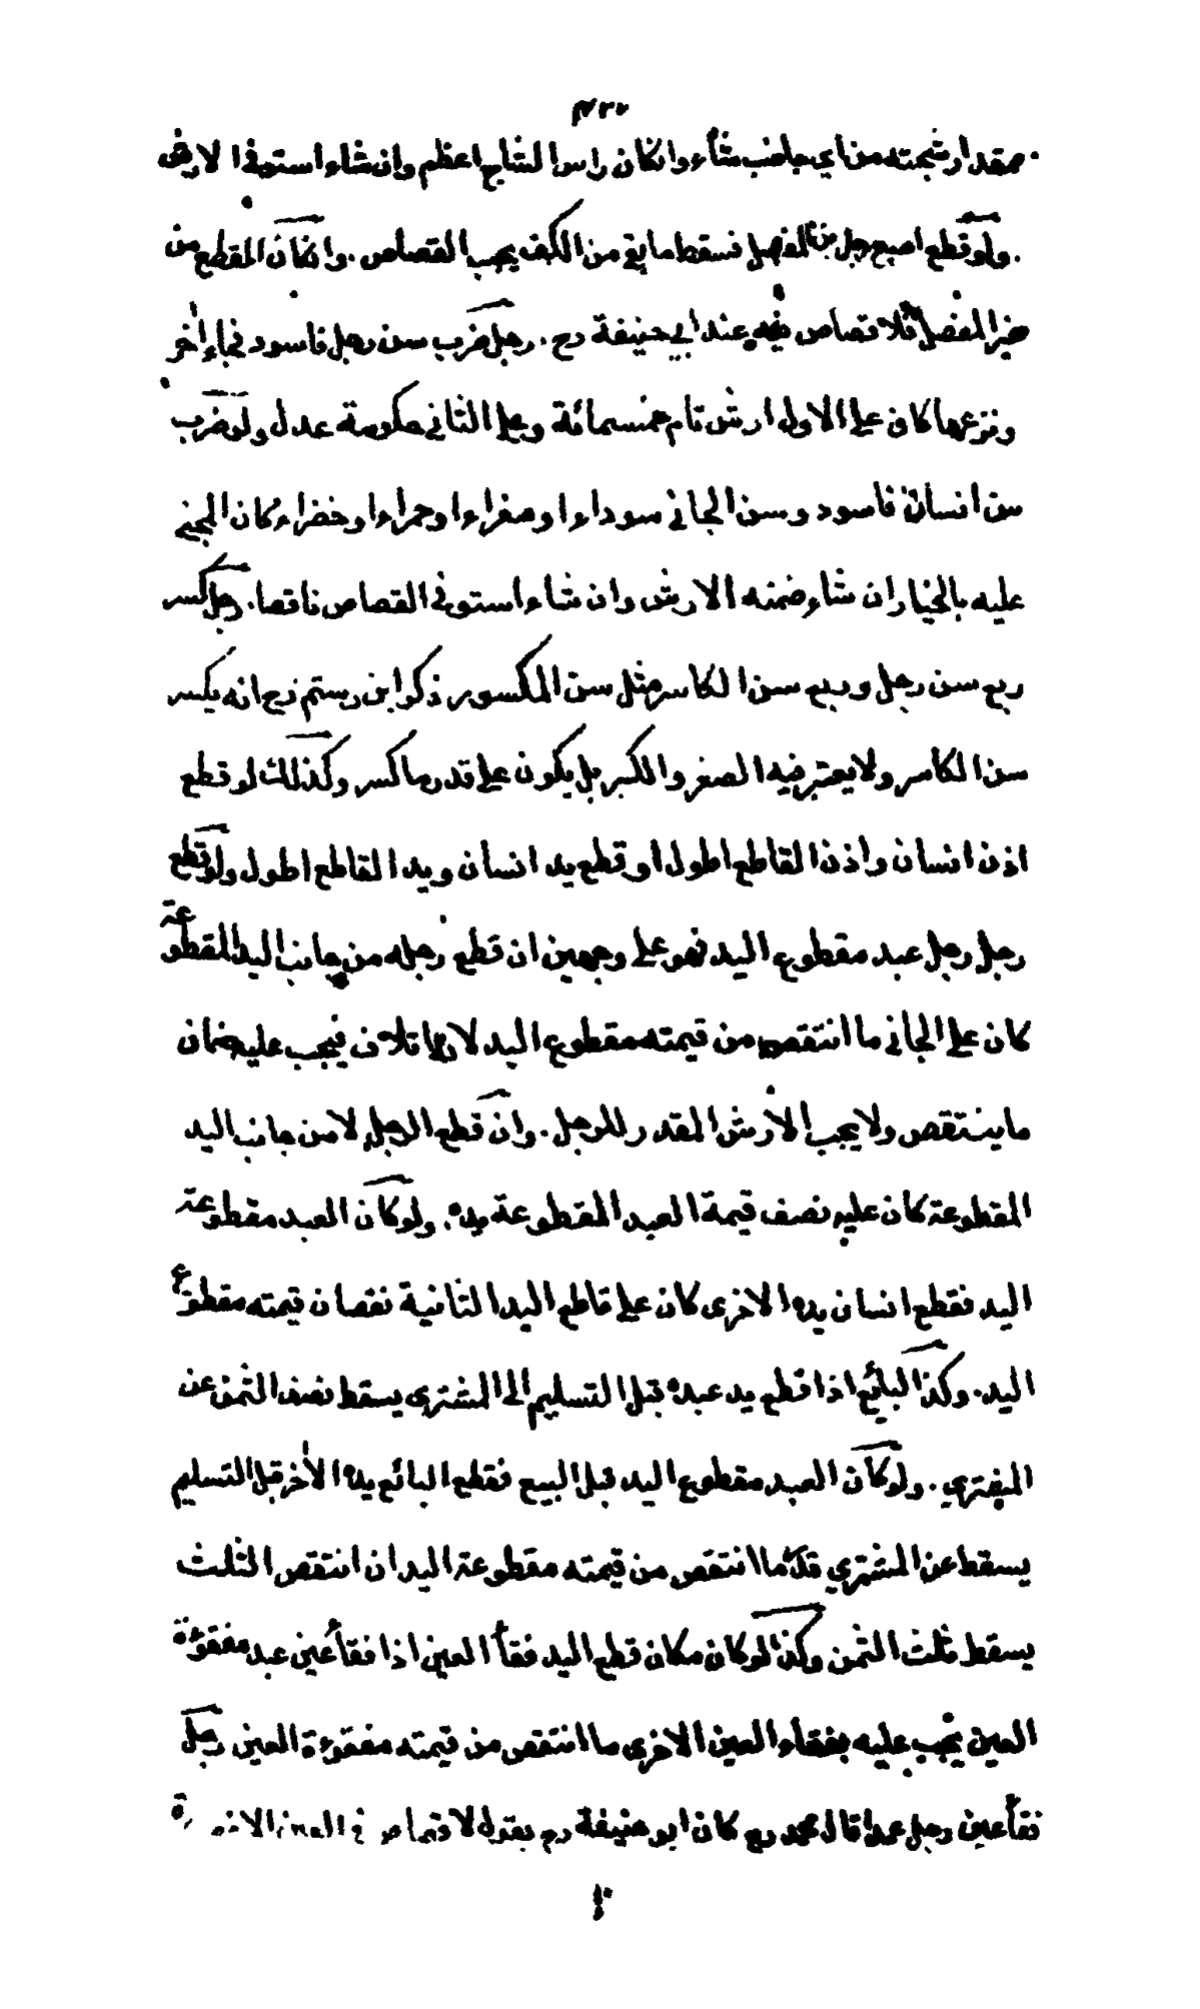 مقدار شجته من اي جانب شاء وان كان راس الشاج اعظم وان شاء استوفى الارش
ولو قطع اصبع رجل من المفصل فسقط ما بقي من الكف يجب القصاص . وان كان المقطع من
غير المفصل فلا قصاص فيه عند ابي حنيفة رح . رجل ضرب سن رجل فاسود فجاء اخر
ونزعها كان على الاول ارش تام خمسمائة وعلى الثاني حكومة عدل ولو ضرب
سن انسان فاسود وسن الجاني سوداء او صفراء او حمراء او خضراء كان المجني
عليه بالخيار ان شاء ضمنه الارش وان شاء استوفى القصاص ناقصا . رجل كسر
ربع سن رجل وربع سن الكاسر مثل سن المكسور ذكر ابن رستم رح انه يكسر
سن الكاسر ولا يعتبر فيه الصغر والكبر بل يكون على قدر ما كسر وكذلك لو قطع
اذن انسان واذن القاطع اطول او قطع يد انسان ويد القاطع اطول ولو قطع
رجل رجل عبد مقطوع اليد فهو على وجهين ان قطع رجله من جانب اليد المقطوعة
كان على الجاني ما انتقص من قيمته مقطوع اليد لان اتلاف فيجب عليه ضمان
ما ينتقص ولا يجب الارش المقدر للرجل . وان قطع الرجل لا من جانب اليد
المقطوعة كان عليه نصف قيمة العبد المقطوعة يده . ولو كان العبد مقطوعة
اليد فقطع انسان يده الاخرى كان على قاطع اليد الثانية نقصان قيمته مقطوع
اليد . وكذا البائع اذا قطع يد عبده قبل التسليم الى المشتري يسقط نصف الثمن عن
المشتري . ولو كان العبد مقطوع اليد قبل البيع فقطع البائع يده الاخر قبل التسليم
يسقط عن المشتري قدر ما انتقص من قيمته مقطوعة اليد ان انتقص الثلث
يسقط ثلث الثمن وكذا لو كان مكان قطع اليد فقأ العين اذا فقأ عين عبد مفقوءة
العين يجب عليه بفقاء العين الاخرى ما انتقص من قيمته مفقوءة العين رجل
فقأ عين رجل عمدا قال محمد رح كان ابو حنيفة رح يقول لا قصاص في العين